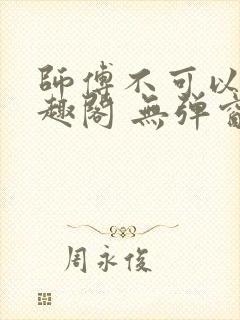 師傅不可以
趣閣 無弹窗
周永俊